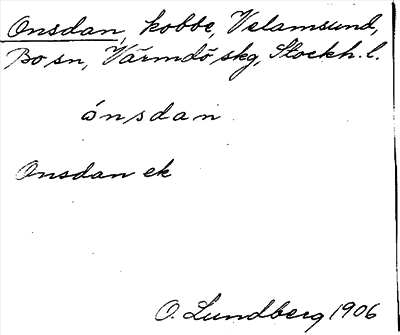 Onsdan, kobbe, Velamsund,
Bo sn, Värmdö skg, Stockh. l.
ónsdan
Onsdan ek
O. Lundberg 1906